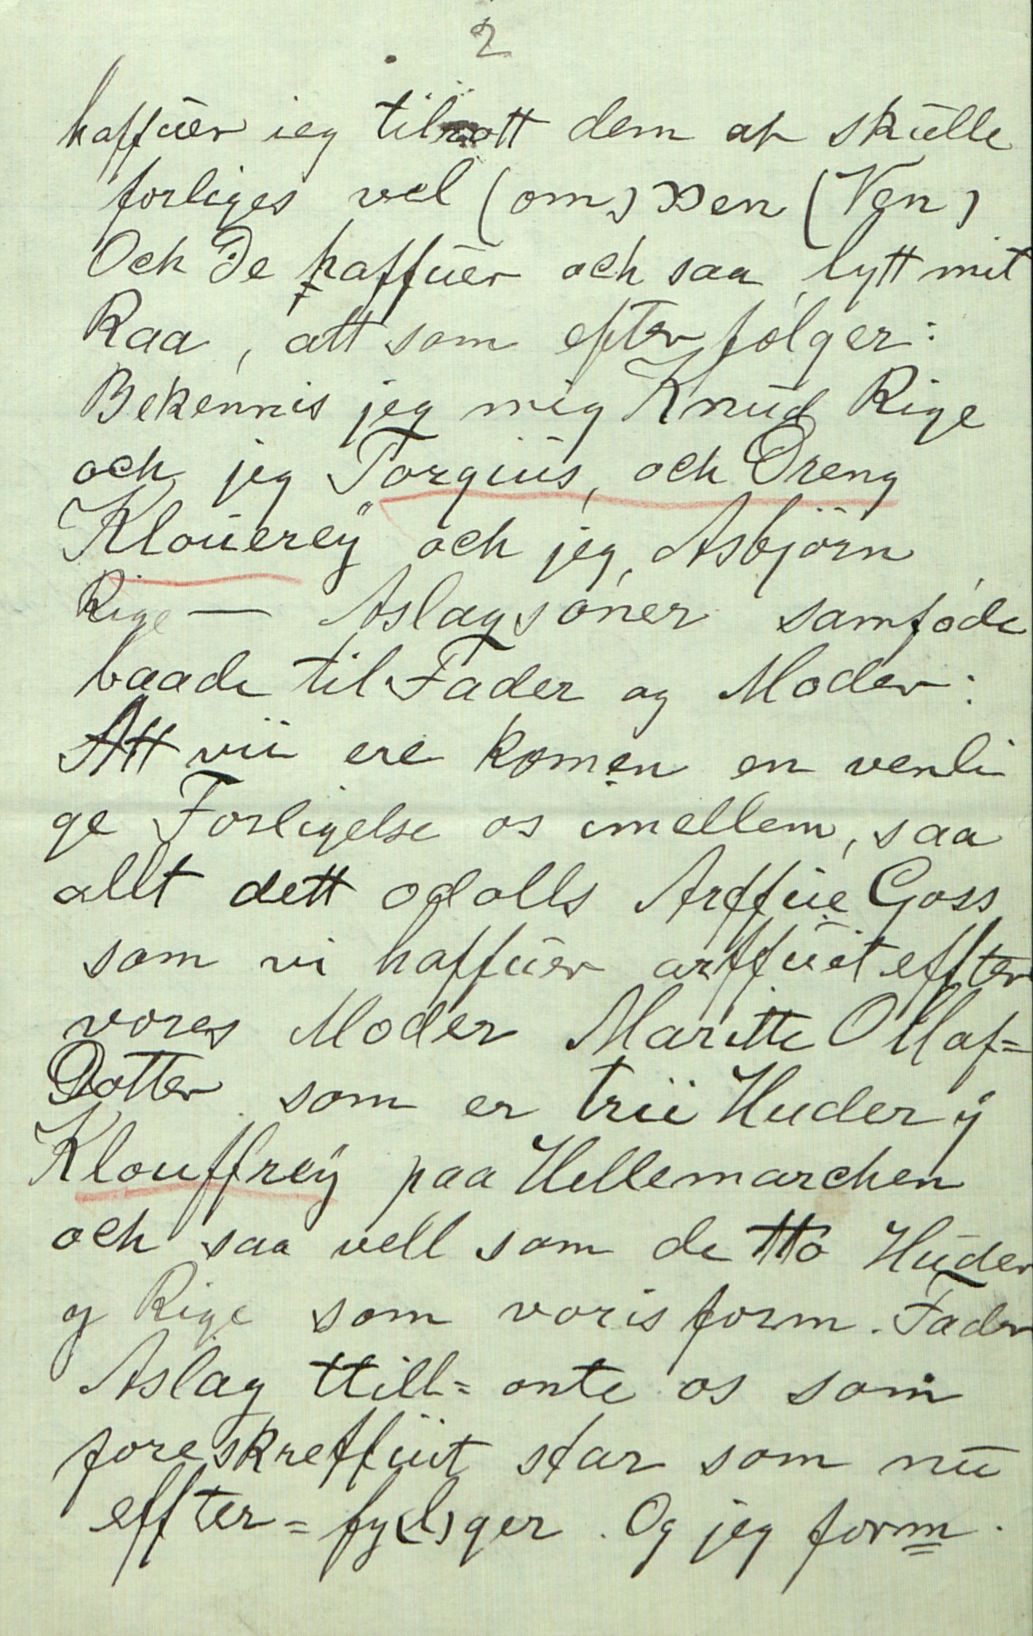 2
haffuer ieg tilrott dem at skulle
forliges vel (om) xen (Ven)
Och De haffuer och saa lytt mit
Raa, att som efter følger:
Bekennis jeg mig Knud Rige
och jeg Torgius, och Dreng
Klouereÿ och jeg, Asbjørn
Rige — Aslagsøner samføde
baade til Fader og Moder:
Att vii ere komen en venli
ge Forligelse os imellem, saa
allt dett odalls Arffue Goss
som vi haffuer arffuit effter
vores Moder Maritte Ollaf=
Dotter som er trii Huder ÿ
Klouffreÿ paa Hellemarchen
och saa vell som de tto Huder
y Rige som voris form. Fader
Aslag ttill= onte os som
foreskreffuit star som nu
effter = fy(l)ger. Og jeg form.